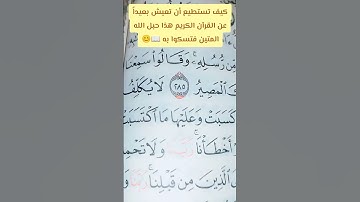 كيف تستطيع أن تعيش بعيداً
عن القرآن الكريم هذا حبل الله
المتين فتسكوا به 📖😊
مِّن رُّسُلِهِۦۚ وَقَالُوا۟ سَمِعْنَا
ٱلْمَصِيرُ ٢٨٥ لَا يُكَلِّفُ
كَسَبَتْ وَعَلَيْهَا مَا ٱكْتَسَبَتْ
أَخْطَأْنَاۚ رَبَّنَا وَلَا تَحْمِ
ٱلَّذِينَ مِن قَبْلِنَاۚ رَبَّنَا